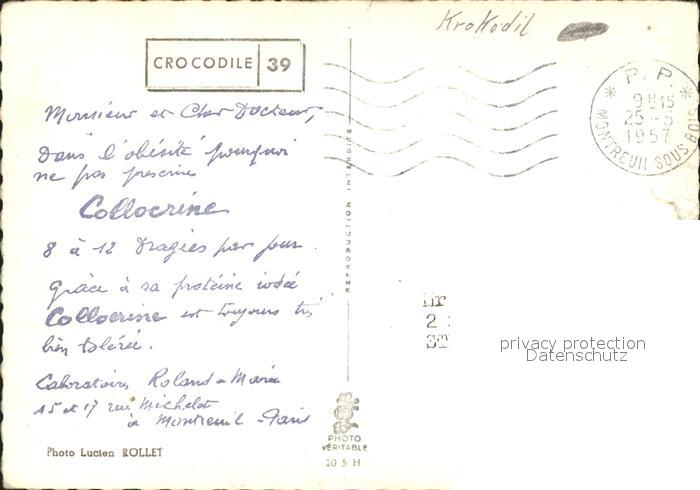 Krokodil
CROCODILE 39
P. P.
9H15
25-5
1957
MONTREUIL SOUS BOIS
Monsieur et Cher Docteur,
Dans l'obésité pourquoi
ne pas prescrire
Collocrine
8 à 12 Dragées par jour.
Grâce à sa protéine iodée
Collocrine est toujours très
bien tolérée.
Laboratoires Roland-Marie
15 et 17 rue Michelet
à Montreuil - Paris
Photo Lucien ROLLET
REPRODUCTION INTERDITE
PHOTO
VÉRITABLE
20 5 H
2
ST
privacy protection
Datenschutz